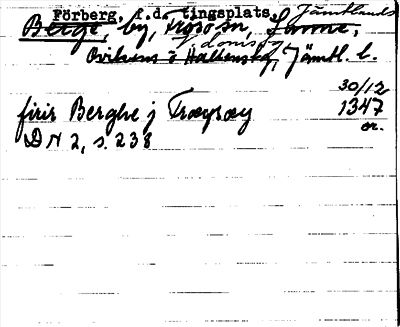 Förberg, f.d. tingsplats, Jämtlands
Berge, by, Frösö sn, Sunne,
domsaga
Oviksns o Hallens tg, Jämtl. l.
30/12
firir Berghe j Frøysøy 1347
or.
DN 2, s. 238